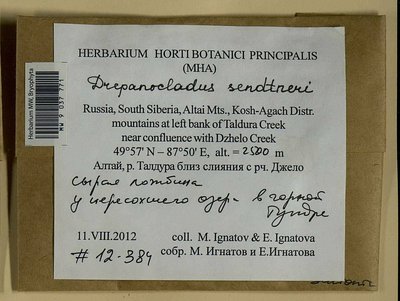 HERBARIUM HORTI BOTANICI PRINCIPALIS
(MHA)
Drepanocladus sendtneri
Russia, South Siberia, Altai Mts., Kosh-Agach Distr.
mountains at left bank of Taldura Creek
near confluence with Dzhelo Creek
49°57' N – 87°50' E, alt. = 2500 m
Алтай, р. Талдура близ слияния с рч. Джело
сырая ложбина
у пересохшего озера в горной
тундре
11.VIII.2012 coll. M. Ignatov & E. Ignatova
# 12-384 собр. М. Игнатов и Е.Игнатова
Herbarium MW, Bryophyta
MW 9 037 771